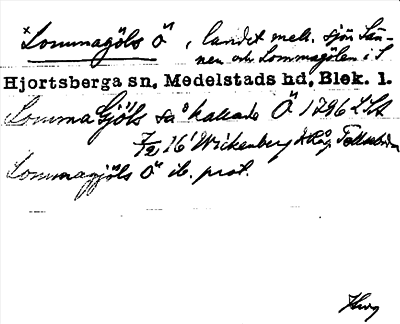 ×Lommagöls Ö, landet mell. sjön Sännen och Lommagölen i S.
Hjortsberga sn, Medelstads hd, Blek. l.
Lomma Gjöls så kallade Ö 1796 LSA
7/2 16' Wickenberg
Lommagjöls Ö ib. prot.